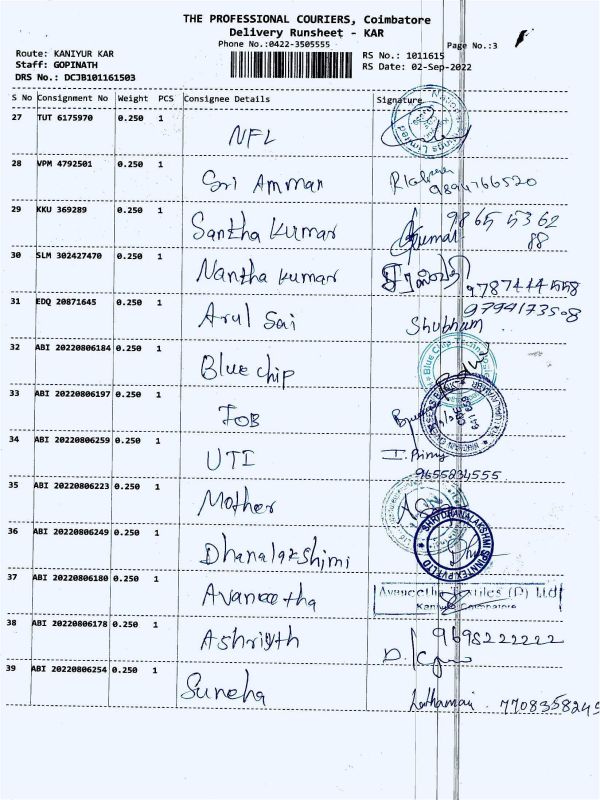 THE PROFESSIONAL COURIERS, Coimbatore
Delivery Runsheet - KAR
Phone No.:0422-3505555
Page No.:3
Route: KANIYUR KAR
RS No.: 1011615
Staff: GOPINATH
RS Date: 02-Sep-2022
DRS No.: DCJB101161503
S No Consignment No Weight PCS Consignee Details Signature
27 TUT 6175970 0.250 1 NFL
28 VPM 4792501 0.250 1 Sri Amman 9894766520
29 KKU 369289 0.250 1 Santha Kumar Kumar 98655 15362
88
30 SLM 302427470 0.250 1 Nantha kumar 9787444558
31 EDQ 20871645 0.250 1 Arul Sai Shubham 9794173508
32 ABI 20220806184 0.250 1 Blue chip Blue Chip
33 ABI 20220806197 0.250 1 IOB
34 ABI 20220806259 0.250 1 UTI
9655834555
35 ABI 20220806223 0.250 1 Mother
36 ABI 20220806249 0.250 1 Dhanalakshimi SHRI DHANALAKSHMI SPINNTEX PVT LTD
37 ABI 20220806180 0.250 1 Avaneetha Avaneetha (P) Ltd
38 ABI 20220806178 0.250 1 Ashriyth 9698222222
39 ABI 20220806254 0.250 1 Suneha 7708358245